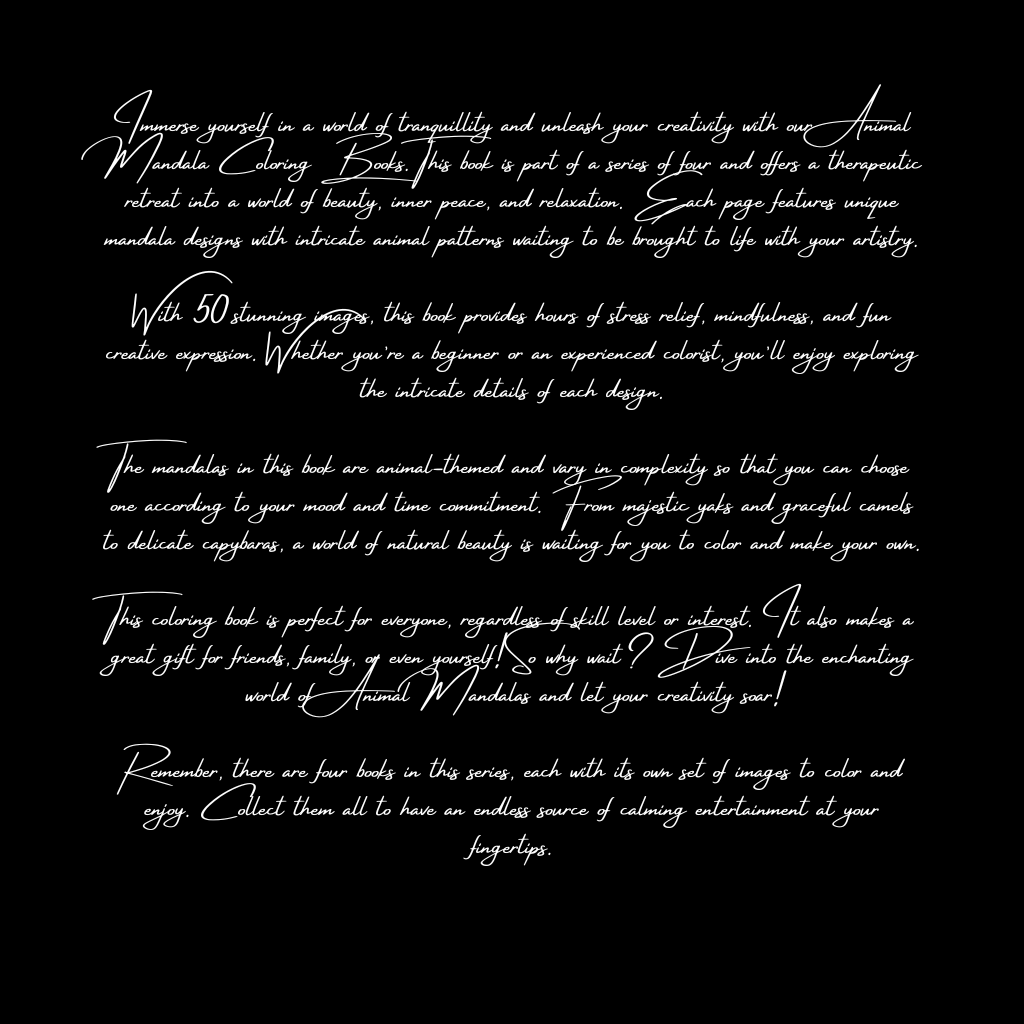 Immerse yourself in a world of tranquillity and unleash your creativity with our Animal
Mandala Coloring Books. This book is part of a series of four and offers a therapeutic
retreat into a world of beauty, inner peace, and relaxation. Each page features unique
mandala designs with intricate animal patterns waiting to be brought to life with your artistry.
With 50 stunning images, this book provides hours of stress relief, mindfulness, and fun
creative expression. Whether you're a beginner or an experienced colorist, you'll enjoy exploring
the intricate details of each design.
The mandalas in this book are animal-themed and vary in complexity so that you can choose
one according to your mood and time commitment. From majestic yaks and graceful camels
to delicate capybaras, a world of natural beauty is waiting for you to color and make your own.
This coloring book is perfect for everyone, regardless of skill level or interest. It also makes a
great gift for friends, family, or even yourself! So why wait? Dive into the enchanting
world of Animal Mandalas and let your creativity soar!
Remember, there are four books in this series, each with its own set of images to color and
enjoy. Collect them all to have an endless source of calming entertainment at your
fingertips.